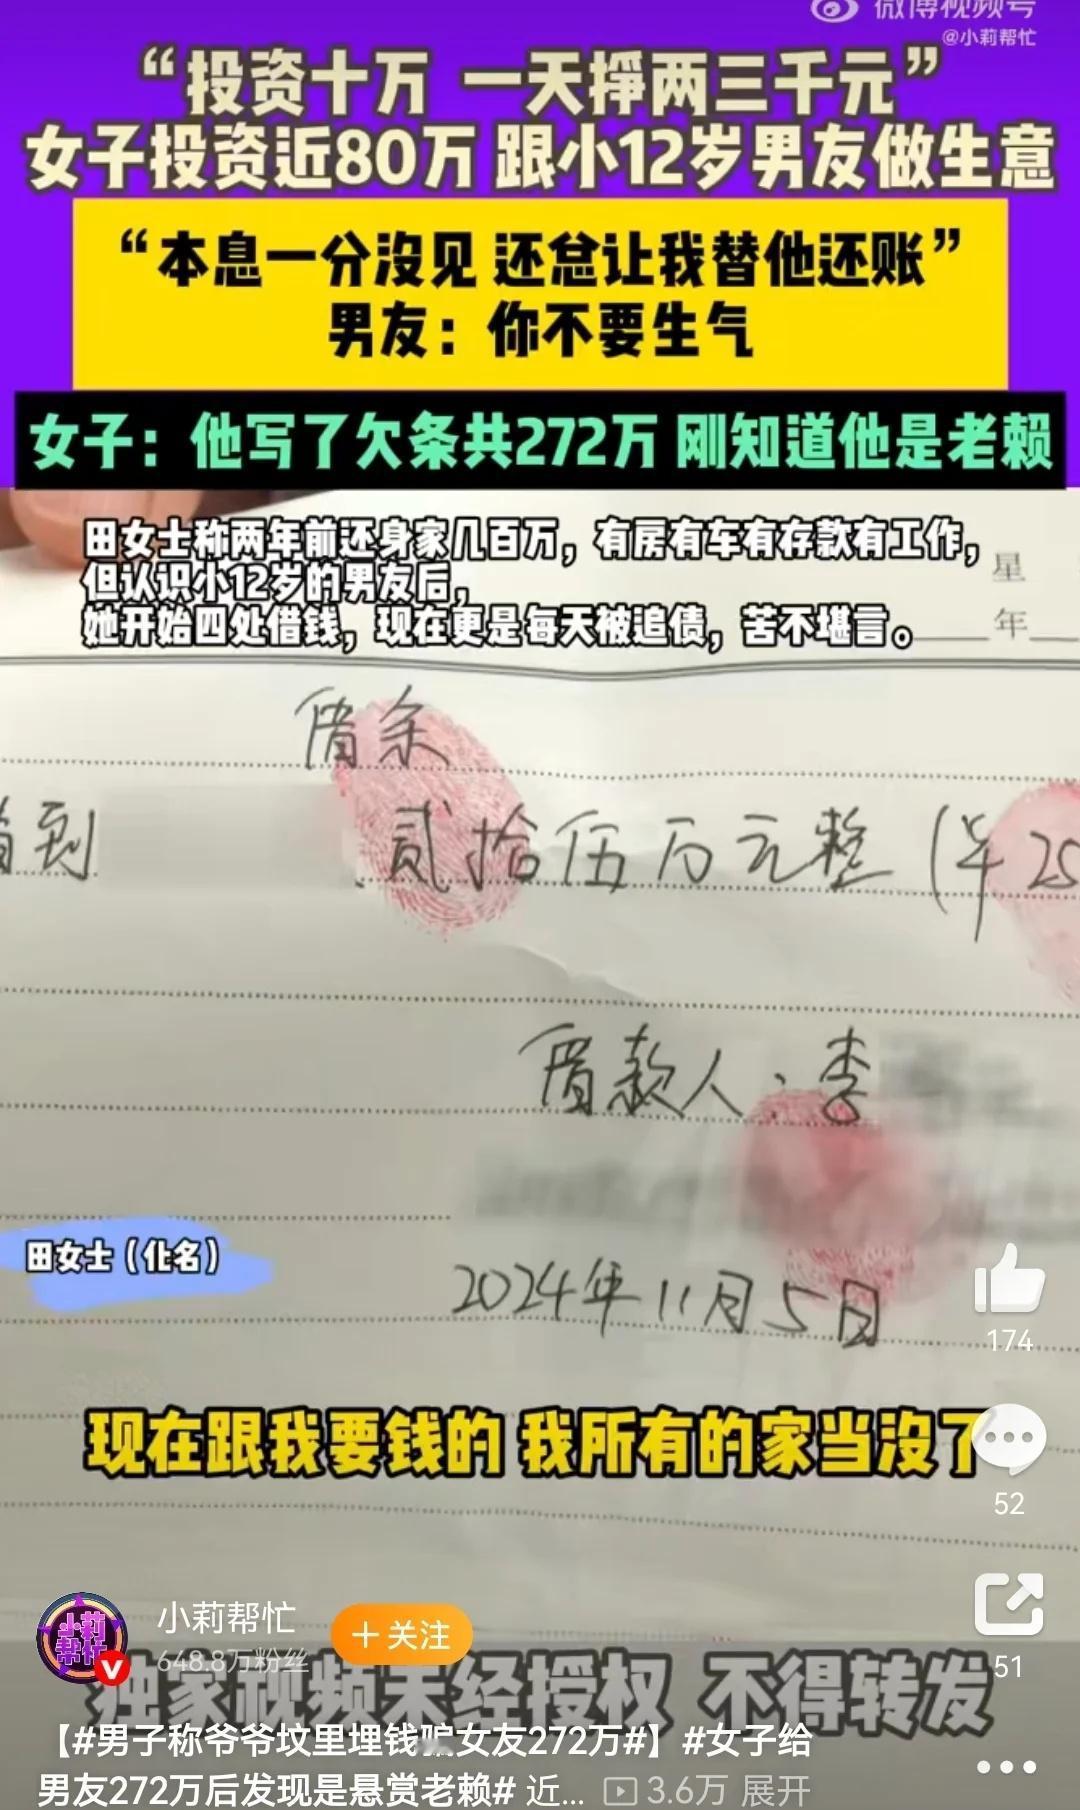 微博视频号
@小莉帮忙
“投资十万 一天挣两三千元”
女子投资近80万 跟小12岁男友做生意
“本息一分没见 还总让我替他还账”
男友：你不要生气
女子：他写了欠条共272万 刚知道他是老赖
田女士称两年前还身家几百万，有房有车有存款有工作，
但认识小12岁的男友后，
她开始四处借钱，现在更是每天被追债，苦不堪言。
星
年
借条
借到 贰拾伍万元整（￥25
借款人：李
田女士（化名）
2024年11月5日
174
现在跟我要钱的 我所有的家当没了
52
小莉帮忙
+关注
648.8万粉丝
51
独家视频未经授权 不得转发
【#男子称爷爷坟里埋钱骗女友272万#】#女子给
男友272万后发现是悬赏老赖# 近... 3.6万 展开